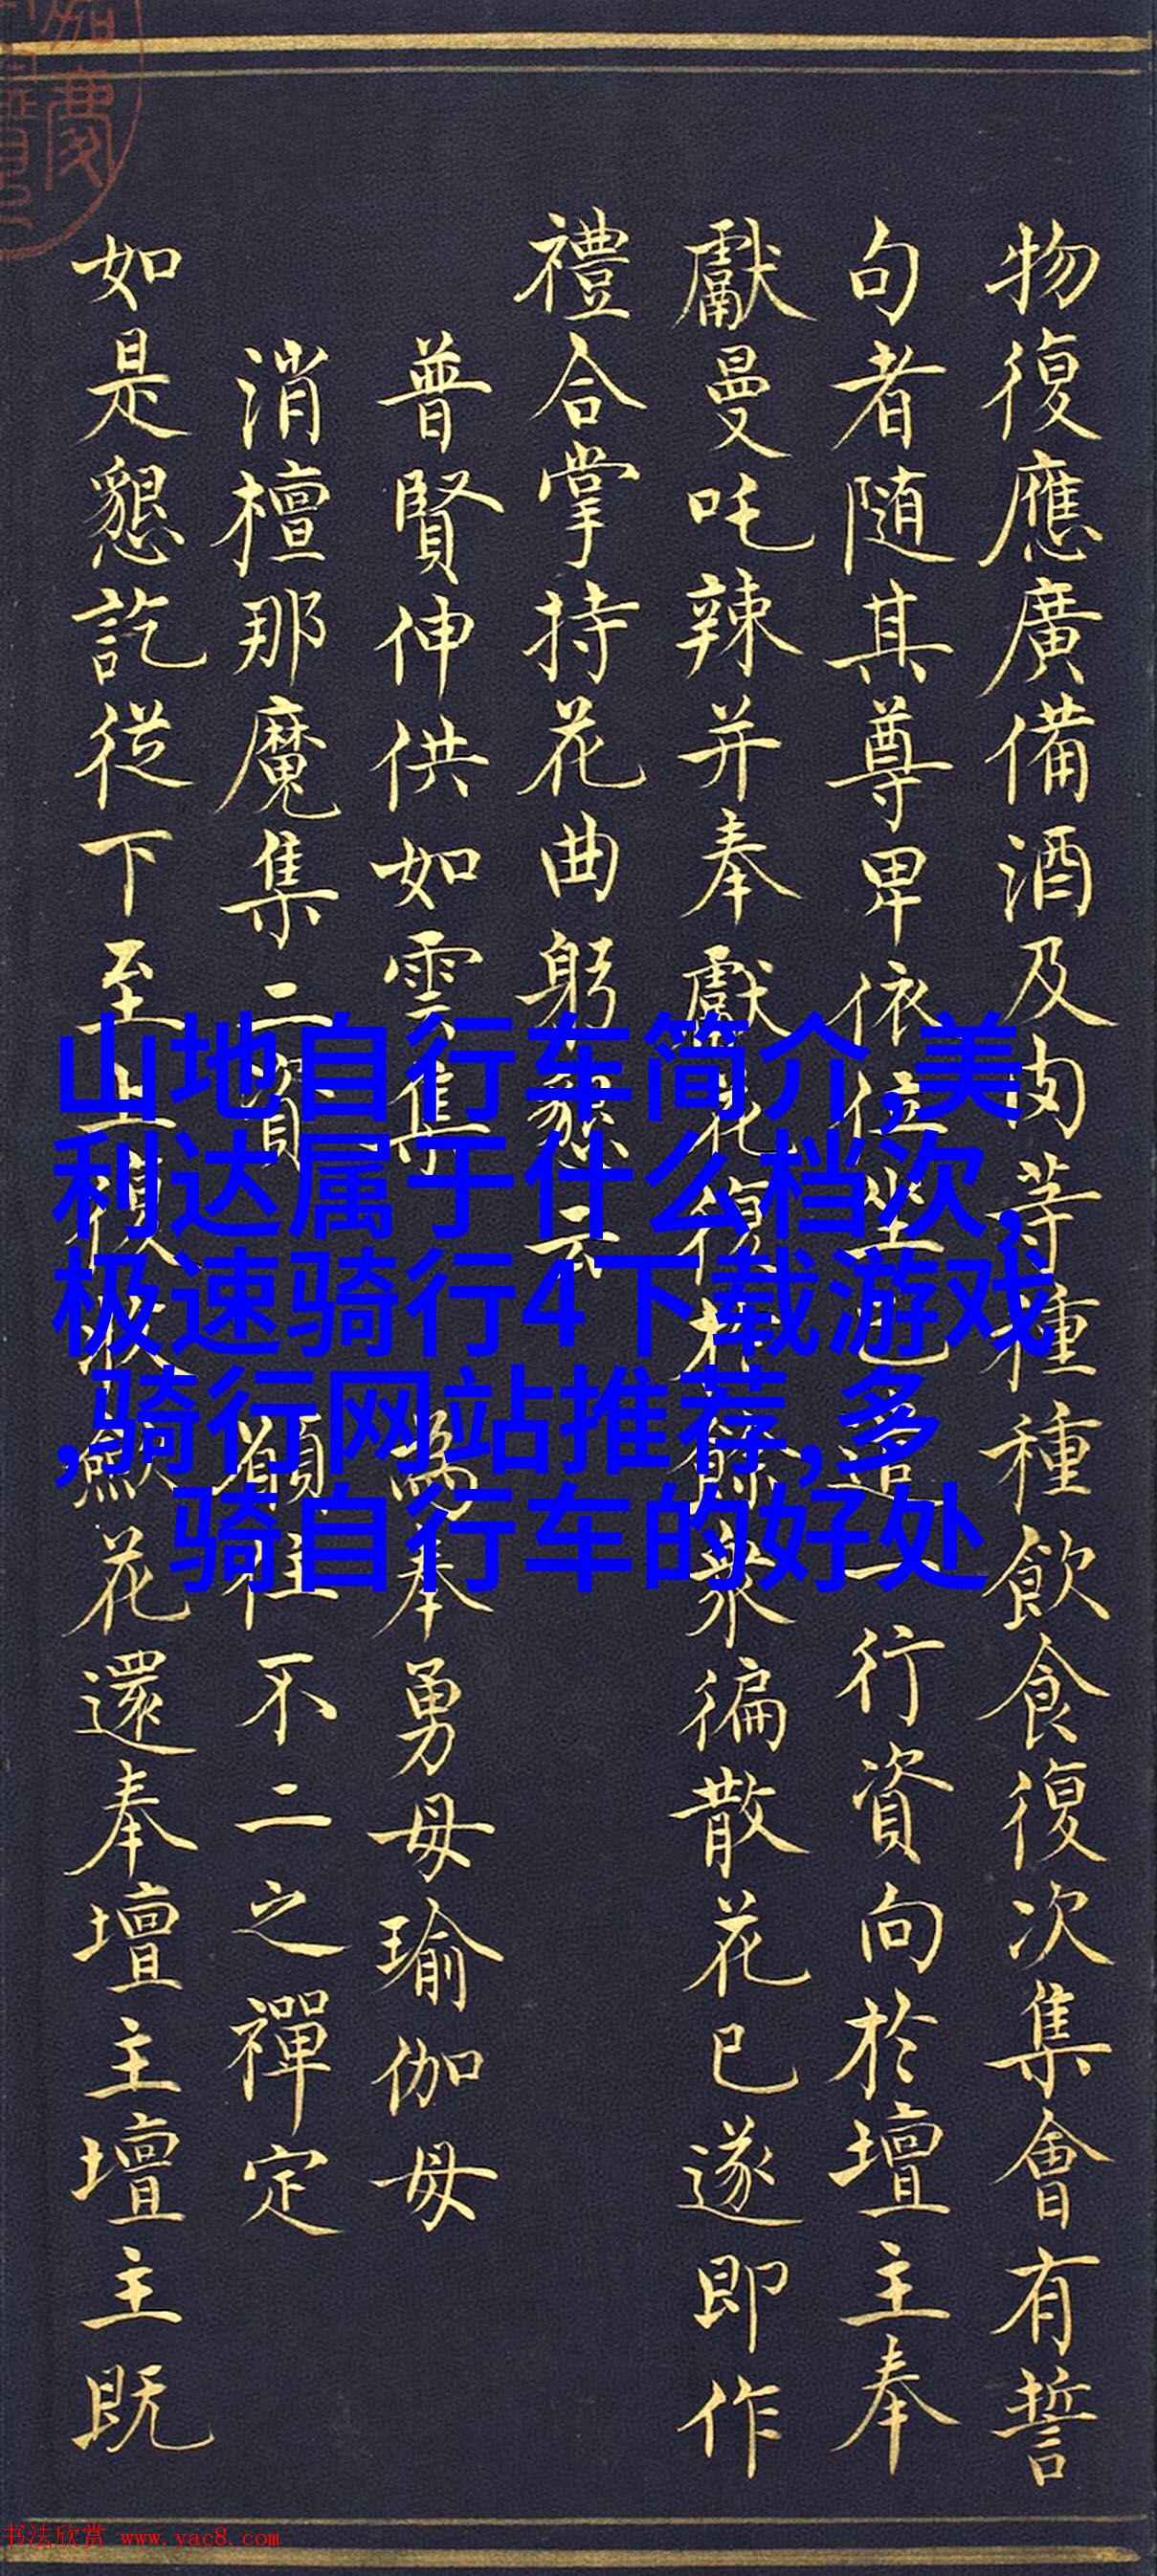 物復應廣備酒及肉等種種飲食復次集會有誓
句者随其尊卑依位坐已造一行資向於壇主奉
獻曼吒辣并奉獻花復將餘衆徧散花已遂即作
禮合掌持花曲躬懇云
普賢伸供如雲集 為奉勇母瑜伽母
消檀那魔集二資 願住不二之禪定
如是懇訖從下至上復收斂花還奉壇主壇主既
山地自行车简介,美
利达属于什么档次,
极速骑行4下载游戏
,骑行网站推荐,多
骑自行车的好处
书法欣赏 www.yac8.com